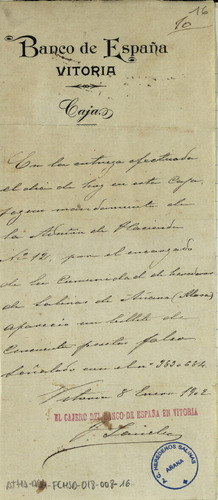 16
10
Banco de España
VITORIA
Caja.
En la entrega efectuada
el dia de hoy en esta Caja
segun mandamiento de
la Admón de Hacienda
Nº 12, por el encargado
de la Comunidad de herederos
de Salinas de Añana (Alava)
aparecio un billete de
Cincuenta pesetas falso
señalado con el nº
Vitoria 8 Enero 1902
EL CAJERO DEL BANCO DE ESPAÑA EN VITORIA
HEREDEROS SALINAS
AÑANA
ATHA-DAH-FCHSD-018-008-16